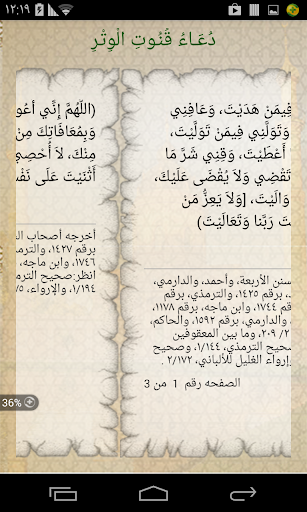 ١٢:١٩
دُعَـاءُ قُنُوتِ الْوِتْرِ
فِيمَنْ هَدَيْتَ، وَعَافِنِي
وَتَوَلَّنِي فِيمَنْ تَوَلَّيْتَ،
أَعْطَيْتَ، وَقِنِي شَرَّ مَا
تَقْضِي وَلاَ يُقْضَى عَلَيْكَ،
وَالَيْتَ، [وَلاَ يَعِزُّ مَنْ
تَ رَبَّنا وَتَعَالَيْتَ)
سنن الأربعة، وأحمد، والدارمي،
برقم ١٤٢٥، والترمذي، برقم
، وابن ماجه، برقم ١١٧٨،
والدارمي، برقم ١٥٩٢، والحاكم،
٢/ ٢٠٩، وما بين المعقوفين
صحيح الترمذي، ١/١٤٤، وصحيح
إرواء الغليل للألباني، ٢/١٧٢ .
الصفحه رقم 1 من 3
(اللَّهُمَّ إِنَّي أعُو
وَبِمُعَافَاتِكَ مِ
مِنْكَ، لاَ أُحْصِي
أَثْنَيْتَ عَلَى نَفْ
أخرجه أصحاب ال
برقم ١٤٢٧، والترمذ
١٧٤٦، وابن ماجه، ب
انظر:صحيح الترمذي
١/١٩٤، والإرواء، ٢/٧٥
36%